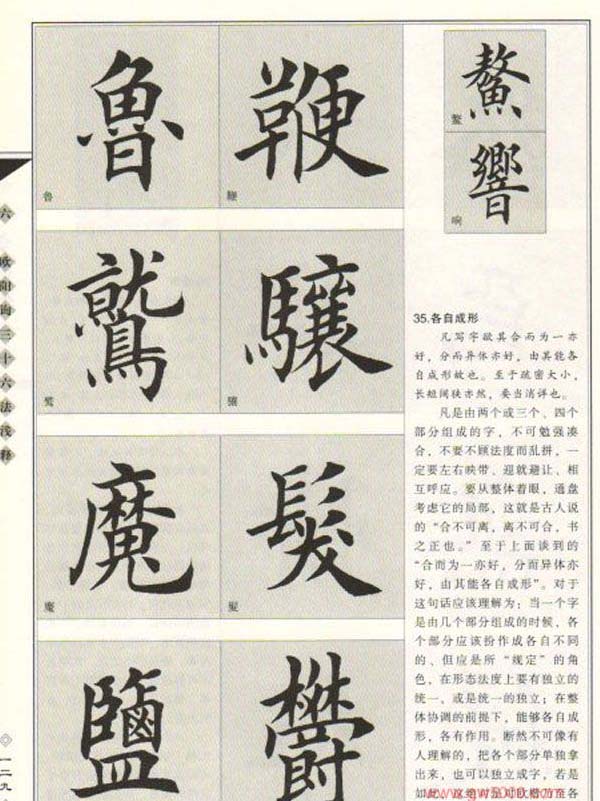 魯
鞭
鲁
鞭
鷲
驤
鹫
骧
魔
髮
魔
髮
鹽
鬱
鰲
響
响
六 欧阳询三十六法浅释
一二九
35.各自成形
凡写字欲其合而为一亦
好，分而异体亦好，由其能各
自成形故也。至于疏密大小，
长短阔狭亦然，要当消详也。
凡是由两个或三个、四个
部分组成的字，不可勉强凑
合，不要不顾法度而乱拼，一
定要左右映带、迎就避让、相
互呼应。要从整体着眼，通盘
考虑它的局部，这就是古人说
的“合不可离，离不可合，书
之正也。”至于上面谈到的
“合而为一亦好，分而异体亦
好，由其能各自成形”。对于
这句话应该理解为：当一个字
是由几个部分组成的时候，各
个部分应该扮作成各自不同
的、但应是所“规定”的角
色，在形态法度上要有独立的
统一，或是统一的独立；在整
体协调的前提下，能够各自成
形，各有作用。断然不可像有
人理解的，把各个部分单独拿
出来，也可以独立成字，若是
如此，这绝对是对欧楷乃至各